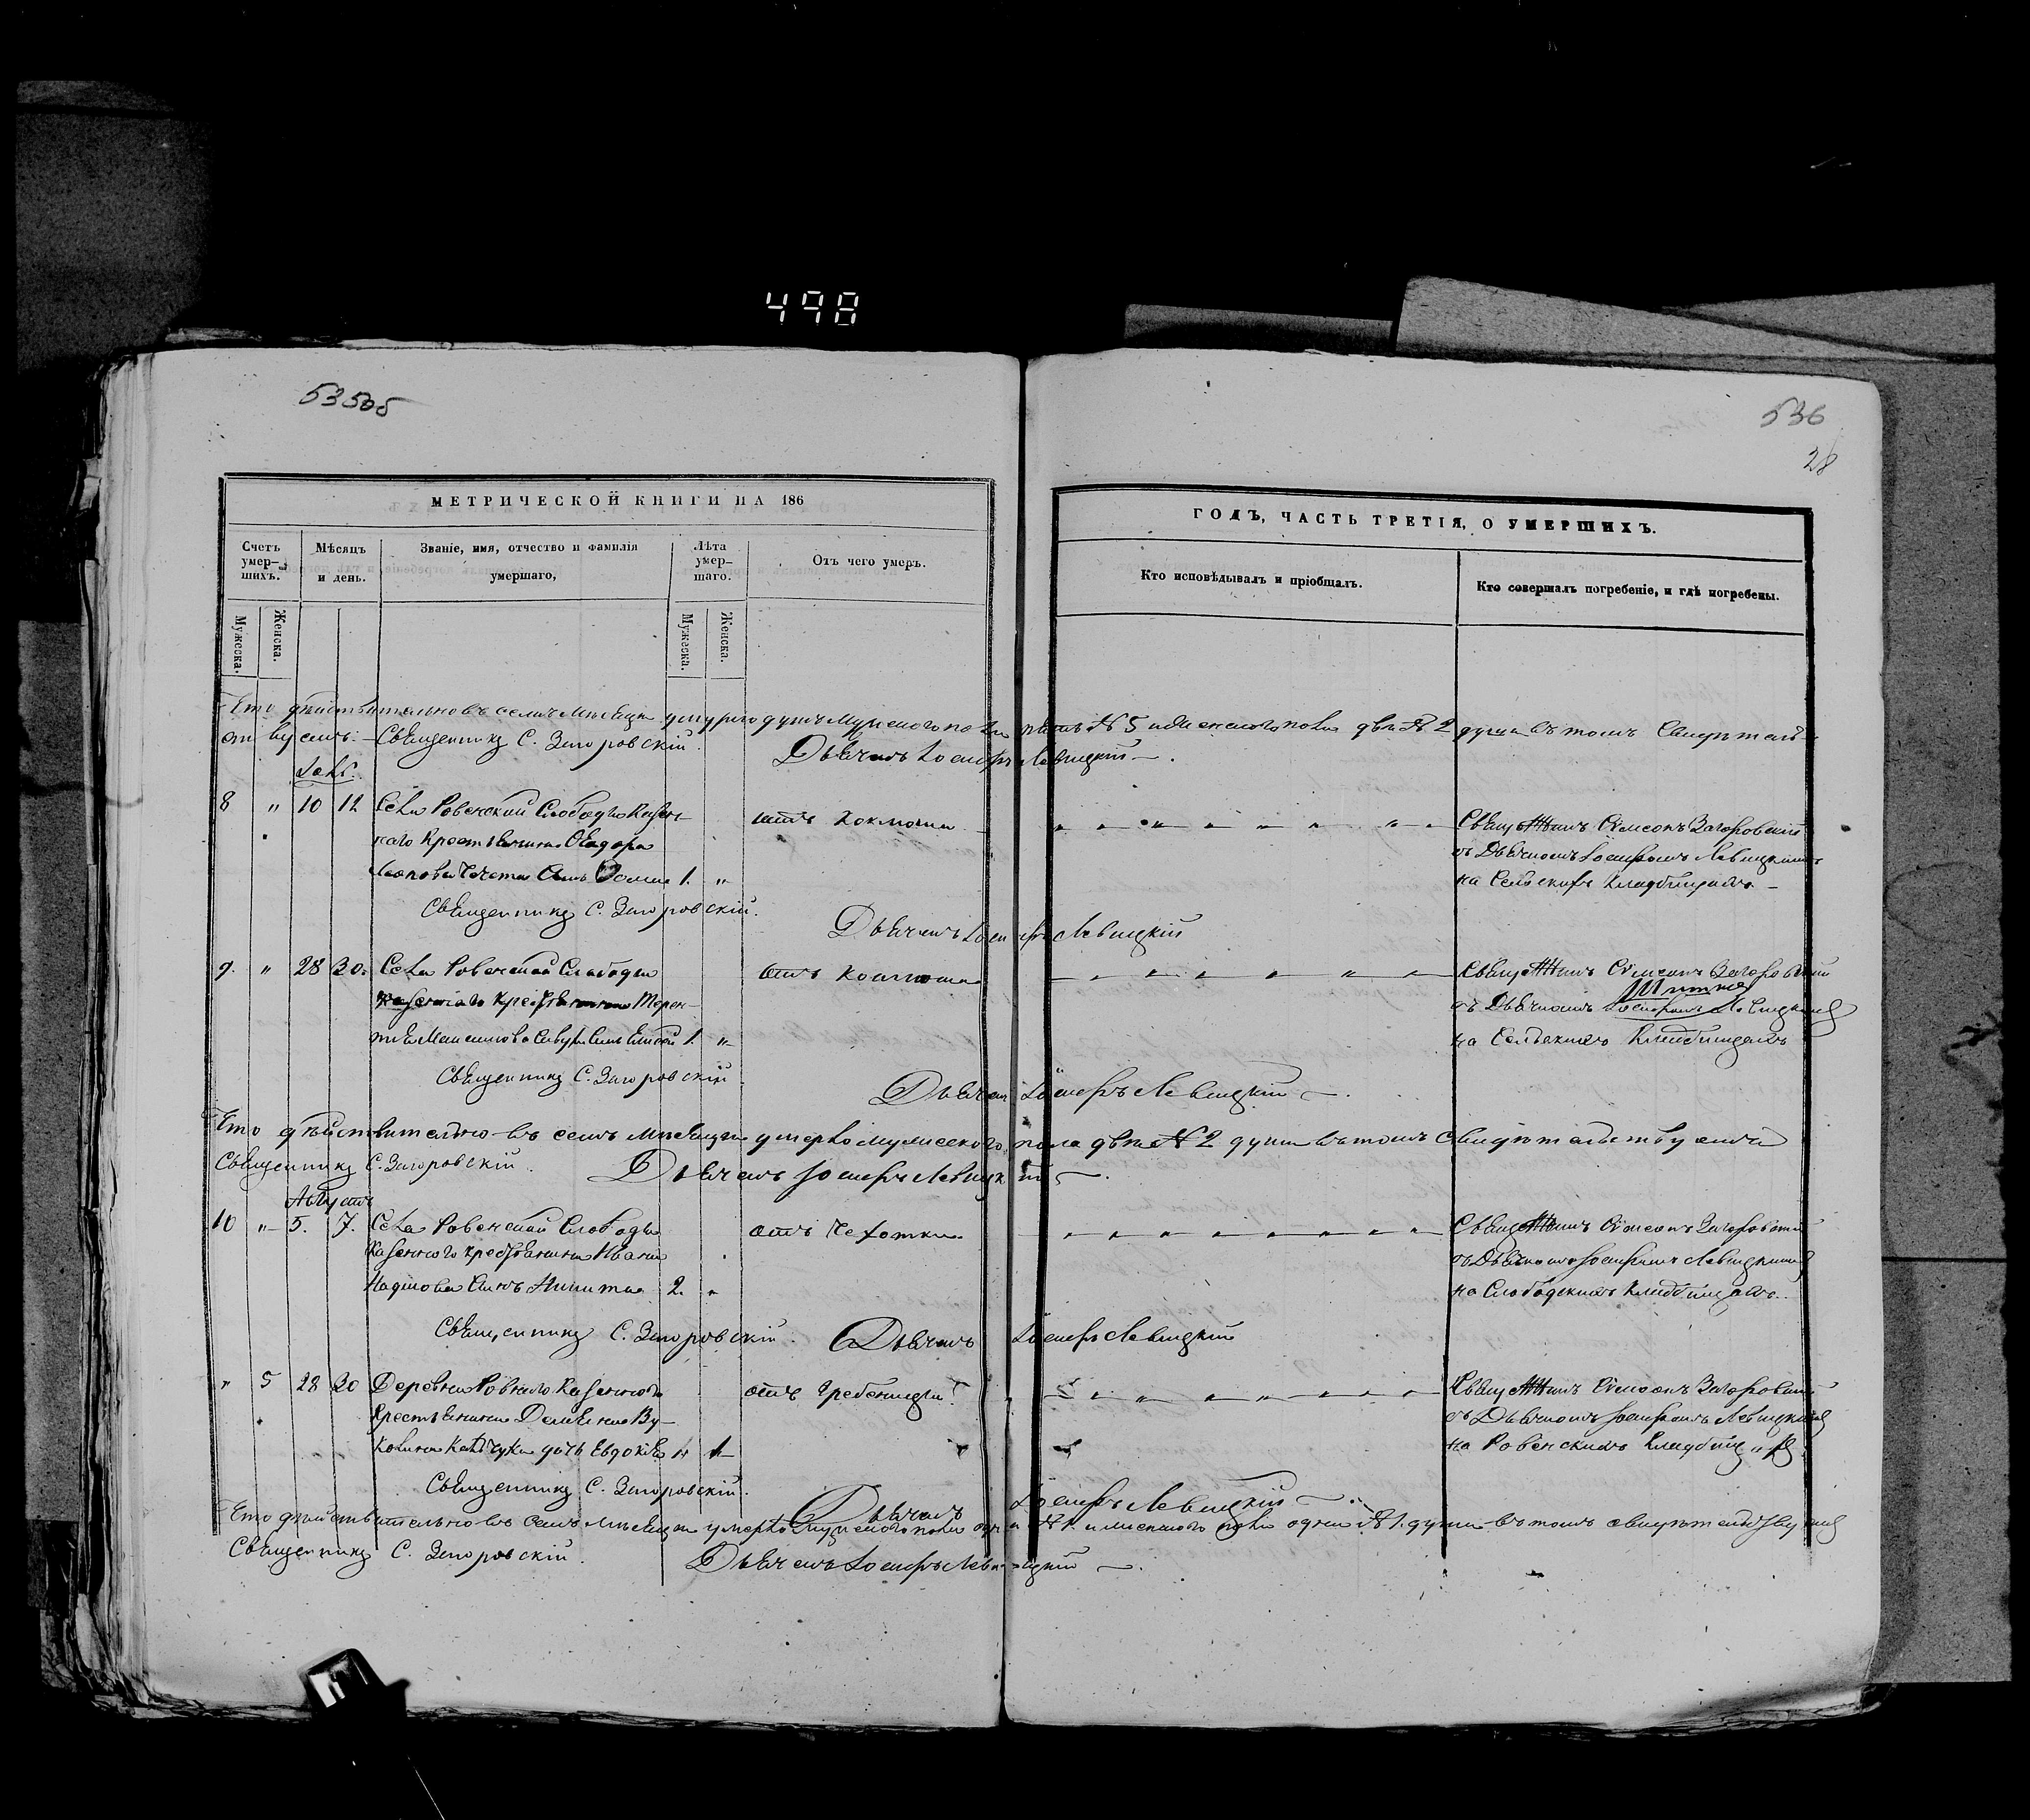 498
535об
536
28
МЕТРИЧЕСКОЙ КНИГИ НА 186
ГОДЪ, ЧАСТЬ ТРЕТІЯ, О УМЕРШИХЪ.
Счетъ умер-шихъ.
Мѣсяцъ и день.
Званіе, имя, отчество и фамилія умершаго,
Лѣта умер-шаго.
Отъ чего умеръ.
Кто исповѣдывалъ и пріобщалъ.
Кто совершалъ погребеніе, и гдѣ погребены.
Мужеска.
Женска.
Мужеска.
Женска.
Что дѣйствительно въ семъ мѣсяцѣ умерло душъ мужескаго пола пять № 5 и женскаго пола двѣ № 2 души въ томъ свидѣтель-
ствуемъ: Священникъ С. Загоровскій. Дьячекъ Іосифъ Левицкій
8 " 10 12 Села Ровенской Слободы Казен- отъ Коклюша Священникъ Сѵмеонъ Загоровскій
наго Крестьянина Ѳеодора съ Дьячкомъ Іосифомъ Левицкимъ
сынъ 1. " на Сельскихъ Кладбищахъ
Священникъ С. Загоровскій.
Дьячекъ Іосифъ Левицкій
9. " 28 30. Села Ровенской Слободы отъ Коклюша Священникъ Сѵмеонъ Загоровскій
казеннаго Крестьянина Терен- съ Дьячкомъ Іосифомъ Левицкимъ
тія Максимова сынъ 1. " на Сельскихъ Кладбищахъ
Священникъ С. Загоровскій
Дьячекъ Іосифъ Левицкій
Что дѣйствительно въ семъ мѣсяцѣ умерло мужескаго пола двѣ № 2 души въ томъ свидѣтельствуемъ
Священникъ С. Загоровскій. Дьячекъ Іосифъ Левицкій
Августъ
10 " 5. 7. Села Ровенской Слободы отъ Чехотки Священникъ Сѵмеонъ Загоровскій
Казеннаго крестьянина Ивана съ Дьячкомъ Іосифомъ Левицкимъ
Сынъ Никита 2. " на Слободскихъ Кладбищахъ
Священникъ С. Загоровскій. Дьячекъ Іосифъ Левицкій
" 5 28 30 Деревни Ровнаго Казеннаго отъ Священникъ Сѵмеонъ Загоровскій
Крестьянина съ Дьячкомъ Іосифомъ Левицкимъ
дочь Евдокія " 1 на Ровенскихъ
Священникъ С. Загоровскій.
Дьячекъ Іосифъ Левицкій
Что дѣйствительно въ семъ мѣсяцѣ умерло мужескаго пола одна № 1. и женскаго пола одна № 1. душа въ томъ свидѣтельствуемъ
Священникъ С. Загоровскій. Дьячекъ Іосифъ Левицкій